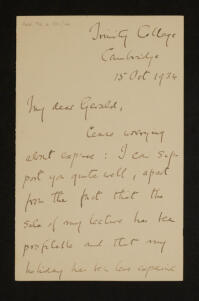 Trinity College
Cambridge
15 Oct 1934
My dear Gerald,
Cease worrying
about expense: I can sup
port you quite well, apart
from the fact that the
sale of my lecture has been
profitable and that my
holiday has been less expensive